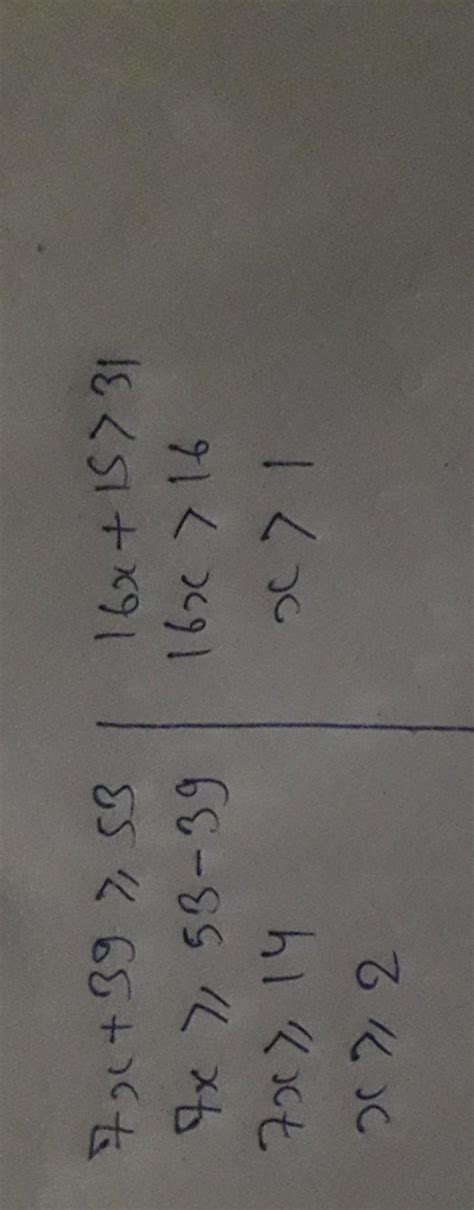 7x + 39 ⩾ 53
7x ⩾ 53 - 39
7x ⩾ 14
x ⩾ 2
16x + 15 > 31
16x > 16
x > 1